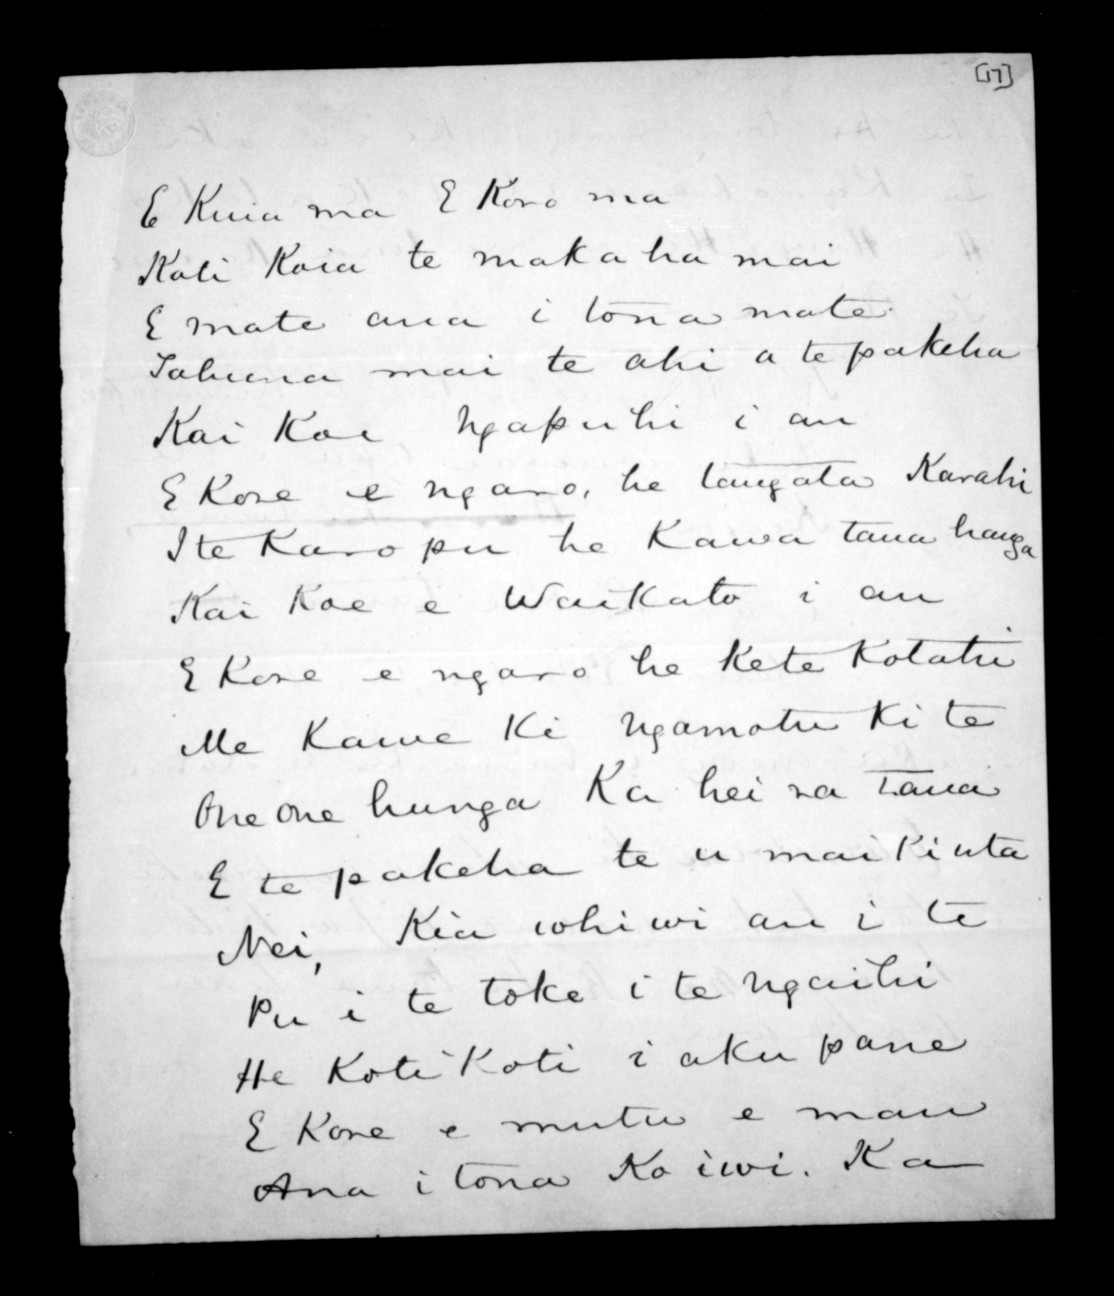 [17]
E Kuia ma E Koro ma
Koti Koia te makaha mai
E mate ana i tona mate
Tahuna mai te ahi a te pakeha
Kai Koe Ngapuhi i au
E Kore e ngaro, he tangata Karahi
I te Karo pu he Kawa taua hanga
Kai Koe e Waikato i au
E Kore e ngaro he Kete Kotahi
Me Kawe Ki Ngamotu Ki te
One one hunga Ka hei sa taua
E te pakeha te u mai Ki uta
Nei, Kia whiwhi au i te
Pu i te toke i te Ngaihi
He Koti Koti i aku pane
E Kore e mutu e mau
Ana i tona Ko iwi. Ka